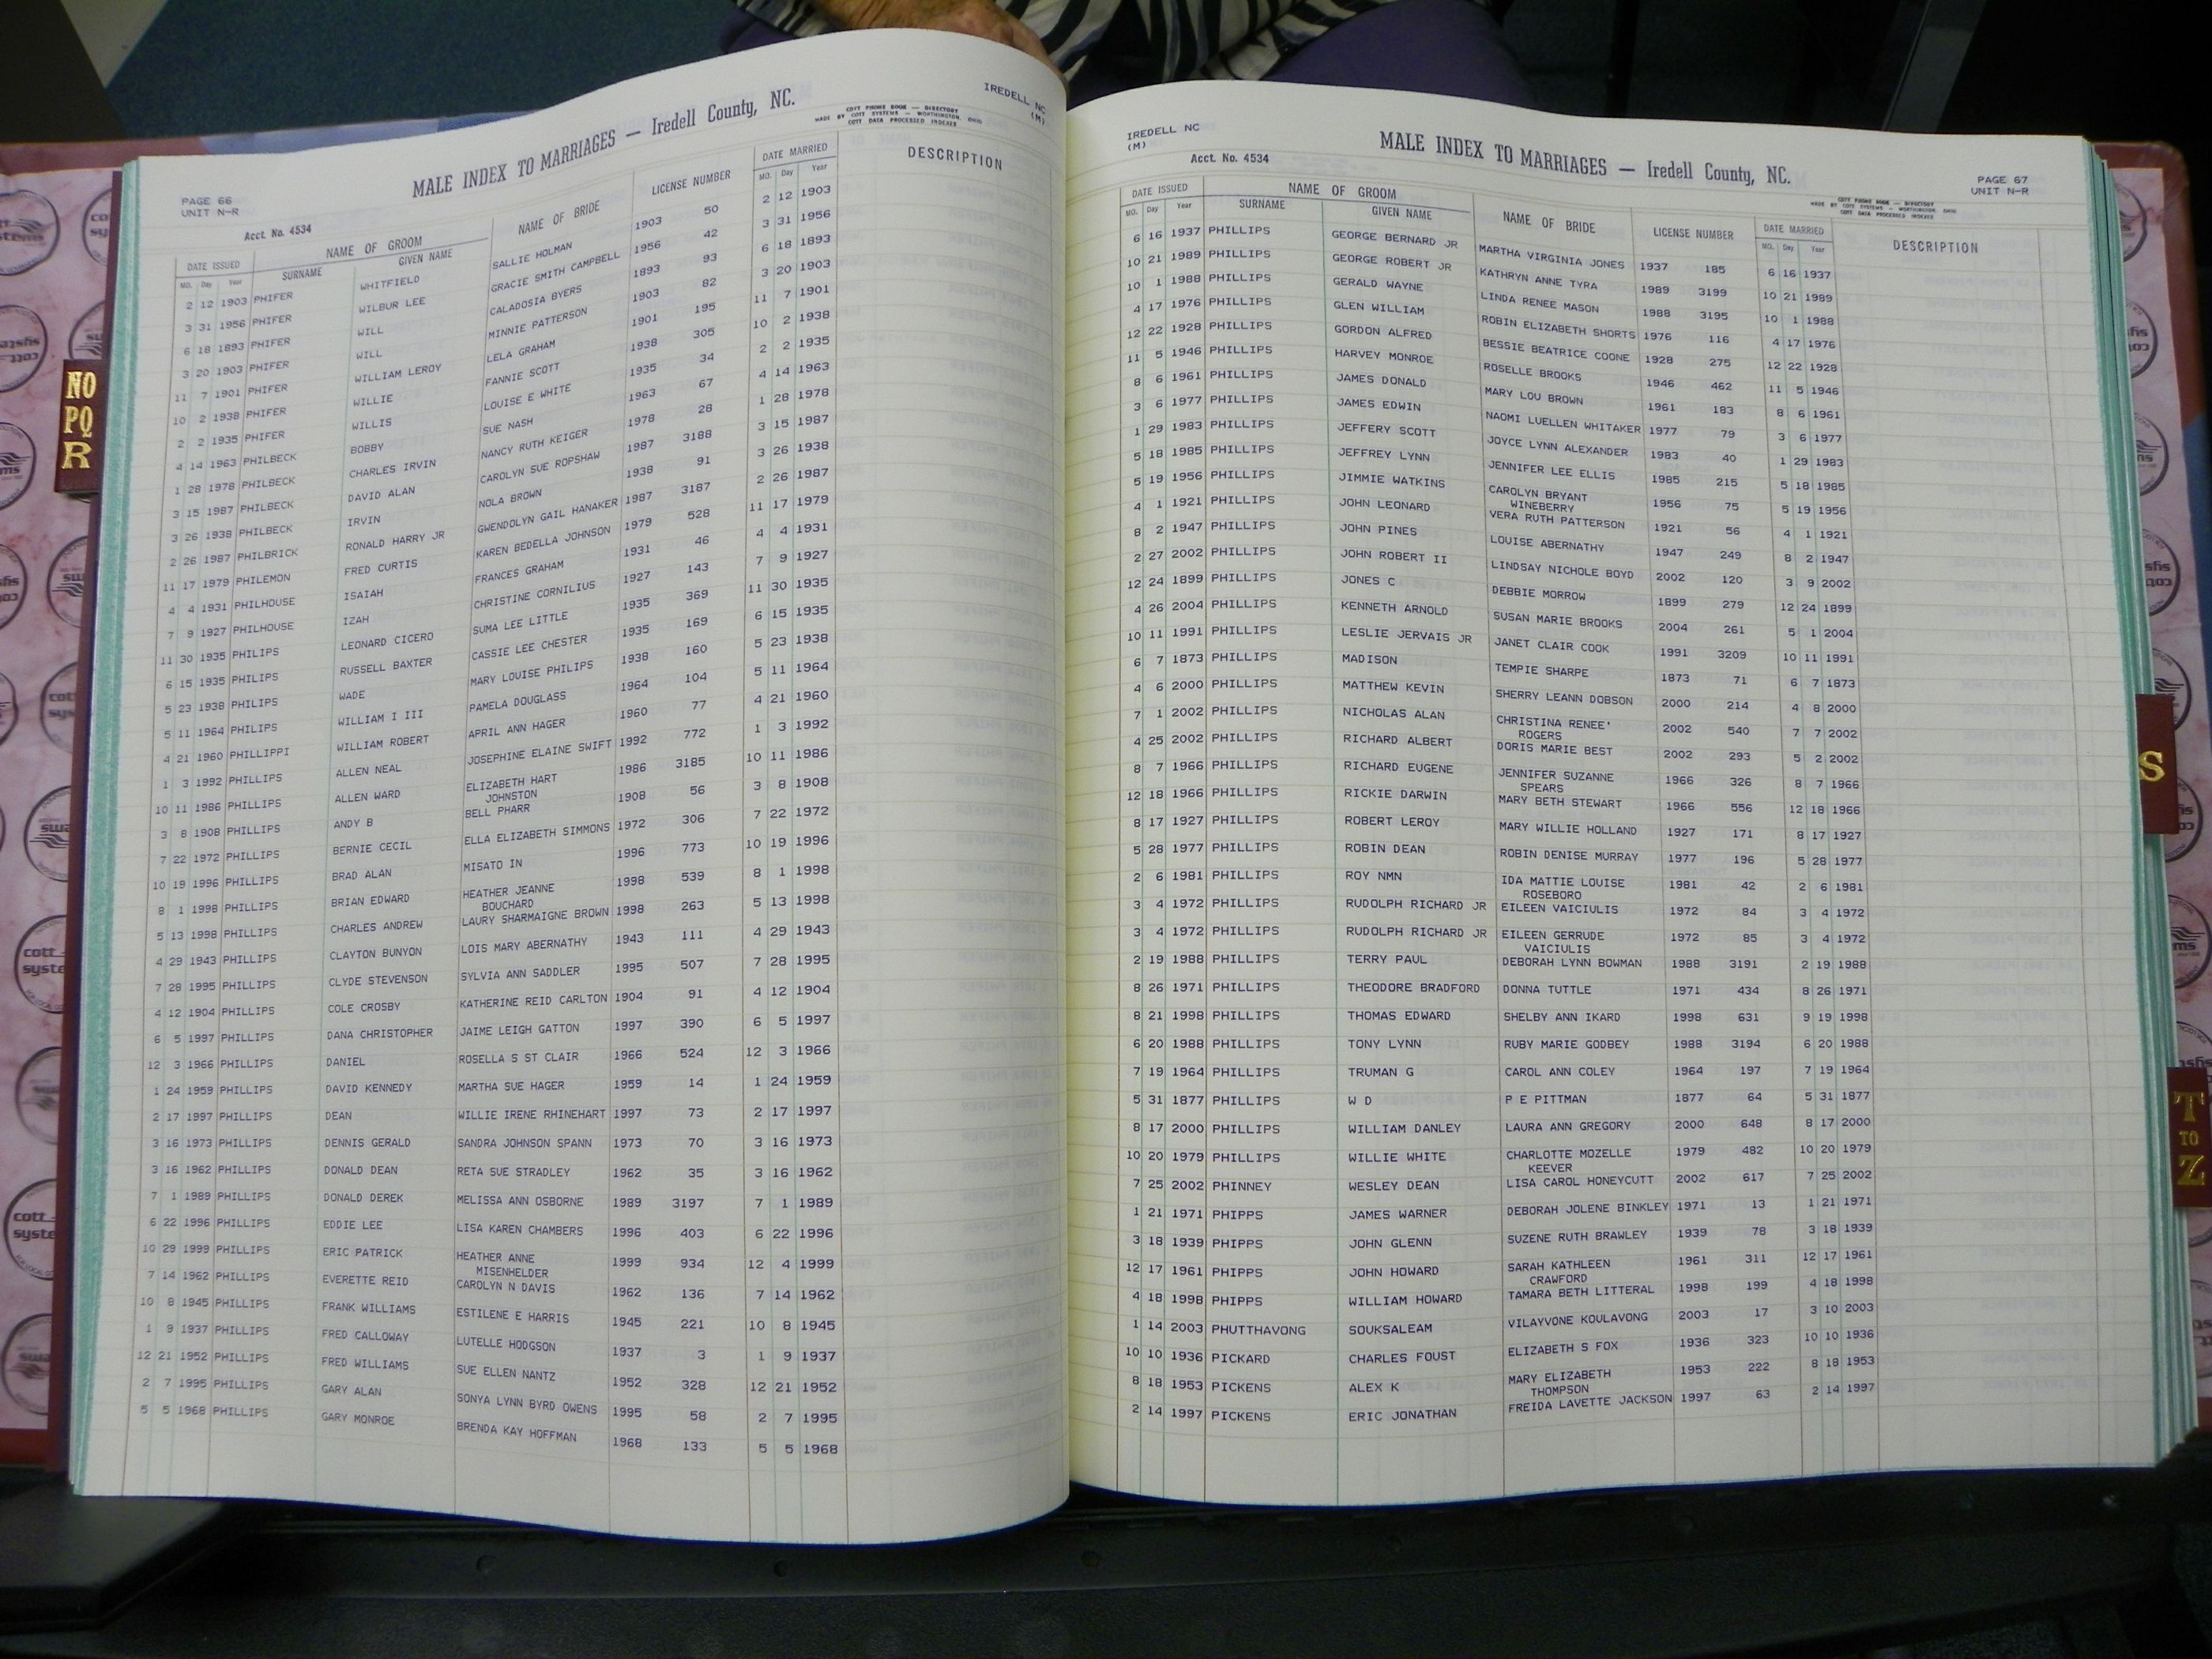 IREDELL NC
(M)
COTT PHONE BOOK — DIRECTORY
MADE BY COTT SYSTEMS — WORTHINGTON, OHIO
COTT DATA PROCESSED INDEXES
MALE INDEX TO MARRIAGES — Iredell County, NC.
PAGE 66
UNIT N-R
Acct. No. 4534
DATE ISSUED NAME OF GROOM NAME OF BRIDE LICENSE NUMBER DATE MARRIED DESCRIPTION
MO. Day Year SURNAME GIVEN NAME MO. Day Year
2 12 1903 PHIFER WHITFIELD SALLIE HOLMAN 1903 50 2 12 1903
3 31 1956 PHIFER WILBUR LEE GRACIE SMITH CAMPBELL 1956 42 3 31 1956
6 18 1893 PHIFER WILL CALADOSIA BYERS 1893 93 6 18 1893
3 20 1903 PHIFER WILL MINNIE PATTERSON 1903 82 3 20 1903
11 7 1901 PHIFER WILLIAM LEROY LELA GRAHAM 1901 195 11 7 1901
10 2 1938 PHIFER WILLIE FANNIE SCOTT 1938 305 10 2 1938
2 2 1935 PHIFER WILLIS LOUISE E WHITE 1935 34 2 2 1935
4 14 1963 PHILBECK BOBBY SUE NASH 1963 67 4 14 1963
1 28 1978 PHILBECK CHARLES IRVIN NANCY RUTH KEIGER 1978 28 1 28 1978
3 15 1987 PHILBECK DAVID ALAN CAROLYN SUE ROPSHAW 1987 3188 3 15 1987
3 26 1938 PHILBECK IRVIN NOLA BROWN 1938 91 3 26 1938
2 26 1987 PHILBRICK RONALD HARRY JR GWENDOLYN GAIL HANAKER 1987 3187 2 26 1987
11 17 1979 PHILEMON FRED CURTIS KAREN BEDELLA JOHNSON 1979 528 11 17 1979
4 4 1931 PHILHOUSE ISAIAH FRANCES GRAHAM 1931 46 4 4 1931
7 9 1927 PHILHOUSE IZAH CHRISTINE CORNILIUS 1927 143 7 9 1927
11 30 1935 PHILIPS LEONARD CICERO SUMA LEE LITTLE 1935 369 11 30 1935
6 15 1935 PHILIPS RUSSELL BAXTER CASSIE LEE CHESTER 1935 169 6 15 1935
5 23 1938 PHILIPS WADE MARY LOUISE PHILIPS 1938 160 5 23 1938
5 11 1964 PHILIPS WILLIAM I III PAMELA DOUGLASS 1964 104 5 11 1964
4 21 1960 PHILLIPPI WILLIAM ROBERT APRIL ANN HAGER 1960 77 4 21 1960
1 3 1992 PHILLIPS ALLEN NEAL JOSEPHINE ELAINE SWIFT 1992 772 1 3 1992
10 11 1986 PHILLIPS ALLEN WARD ELIZABETH HART 1986 3185 10 11 1986
JOHNSTON
3 8 1908 PHILLIPS ANDY B BELL PHARR 1908 56 3 8 1908
7 22 1972 PHILLIPS BERNIE CECIL ELLA ELIZABETH SIMMONS 1972 306 7 22 1972
10 19 1996 PHILLIPS BRAD ALAN MISATO IN 1996 773 10 19 1996
8 1 1998 PHILLIPS BRIAN EDWARD HEATHER JEANNE 1998 539 8 1 1998
BOUCHARD
5 13 1998 PHILLIPS CHARLES ANDREW LAURY SHARMAIGNE BROWN 1998 263 5 13 1998
4 29 1943 PHILLIPS CLAYTON BUNYON LOIS MARY ABERNATHY 1943 111 4 29 1943
7 28 1995 PHILLIPS CLYDE STEVENSON SYLVIA ANN SADDLER 1995 507 7 28 1995
4 12 1904 PHILLIPS COLE CROSBY KATHERINE REID CARLTON 1904 91 4 12 1904
6 5 1997 PHILLIPS DANA CHRISTOPHER JAIME LEIGH GATTON 1997 390 6 5 1997
12 3 1966 PHILLIPS DANIEL ROSELLA S ST CLAIR 1966 524 12 3 1966
1 24 1959 PHILLIPS DAVID KENNEDY MARTHA SUE HAGER 1959 14 1 24 1959
2 17 1997 PHILLIPS DEAN WILLIE IRENE RHINEHART 1997 73 2 17 1997
3 16 1973 PHILLIPS DENNIS GERALD SANDRA JOHNSON SPANN 1973 70 3 16 1973
3 16 1962 PHILLIPS DONALD DEAN RETA SUE STRADLEY 1962 35 3 16 1962
7 1 1989 PHILLIPS DONALD DEREK MELISSA ANN OSBORNE 1989 3197 7 1 1989
6 22 1996 PHILLIPS EDDIE LEE LISA KAREN CHAMBERS 1996 403 6 22 1996
10 29 1999 PHILLIPS ERIC PATRICK HEATHER ANNE 1999 934 12 4 1999
MISENHELDER
7 14 1962 PHILLIPS EVERETTE REID CAROLYN N DAVIS 1962 136 7 14 1962
10 8 1945 PHILLIPS FRANK WILLIAMS ESTILENE E HARRIS 1945 221 10 8 1945
1 9 1937 PHILLIPS FRED CALLOWAY LUTELLE HODGSON 1937 3 1 9 1937
12 21 1952 PHILLIPS FRED WILLIAMS SUE ELLEN NANTZ 1952 328 12 21 1952
2 7 1995 PHILLIPS GARY ALAN SONYA LYNN BYRD OWENS 1995 58 2 7 1995
5 5 1968 PHILLIPS GARY MONROE BRENDA KAY HOFFMAN 1968 133 5 5 1968
IREDELL NC
(M)
Acct. No. 4534
MALE INDEX TO MARRIAGES — Iredell County, NC.
PAGE 67
UNIT N-R
COTT PHONE BOOK — DIRECTORY
MADE BY COTT SYSTEMS — WORTHINGTON, OHIO
COTT DATA PROCESSED INDEXES
DATE ISSUED NAME OF GROOM NAME OF BRIDE LICENSE NUMBER DATE MARRIED DESCRIPTION
MO. Day Year SURNAME GIVEN NAME MO. Day Year
6 16 1937 PHILLIPS GEORGE BERNARD JR MARTHA VIRGINIA JONES 1937 185 6 16 1937
10 21 1989 PHILLIPS GEORGE ROBERT JR KATHRYN ANNE TYRA 1989 3199 10 21 1989
10 1 1988 PHILLIPS GERALD WAYNE LINDA RENEE MASON 1988 3195 10 1 1988
4 17 1976 PHILLIPS GLEN WILLIAM ROBIN ELIZABETH SHORTS 1976 116 4 17 1976
12 22 1928 PHILLIPS GORDON ALFRED BESSIE BEATRICE COONE 1928 275 12 22 1928
11 5 1946 PHILLIPS HARVEY MONROE ROSELLE BROOKS 1946 462 11 5 1946
8 6 1961 PHILLIPS JAMES DONALD MARY LOU BROWN 1961 183 8 6 1961
3 6 1977 PHILLIPS JAMES EDWIN NAOMI LUELLEN WHITAKER 1977 79 3 6 1977
1 29 1983 PHILLIPS JEFFERY SCOTT JOYCE LYNN ALEXANDER 1983 40 1 29 1983
5 18 1985 PHILLIPS JEFFREY LYNN JENNIFER LEE ELLIS 1985 215 5 18 1985
5 19 1956 PHILLIPS JIMMIE WATKINS CAROLYN BRYANT 1956 75 5 19 1956
WINEBERRY
4 1 1921 PHILLIPS JOHN LEONARD VERA RUTH PATTERSON 1921 56 4 1 1921
8 2 1947 PHILLIPS JOHN PINES LOUISE ABERNATHY 1947 249 8 2 1947
2 27 2002 PHILLIPS JOHN ROBERT II LINDSAY NICHOLE BOYD 2002 120 3 9 2002
12 24 1899 PHILLIPS JONES C DEBBIE MORROW 1899 279 12 24 1899
4 26 2004 PHILLIPS KENNETH ARNOLD SUSAN MARIE BROOKS 2004 261 5 1 2004
10 11 1991 PHILLIPS LESLIE JERVAIS JR JANET CLAIR COOK 1991 3209 10 11 1991
6 7 1873 PHILLIPS MADISON TEMPIE SHARPE 1873 71 6 7 1873
4 6 2000 PHILLIPS MATTHEW KEVIN SHERRY LEANN DOBSON 2000 214 4 8 2000
7 1 2002 PHILLIPS NICHOLAS ALAN CHRISTINA RENEE' 2002 540 7 7 2002
ROGERS
4 25 2002 PHILLIPS RICHARD ALBERT DORIS MARIE BEST 2002 293 5 2 2002
8 7 1966 PHILLIPS RICHARD EUGENE JENNIFER SUZANNE 1966 326 8 7 1966
SPEARS
12 18 1966 PHILLIPS RICKIE DARWIN MARY BETH STEWART 1966 556 12 18 1966
8 17 1927 PHILLIPS ROBERT LEROY MARY WILLIE HOLLAND 1927 171 8 17 1927
5 28 1977 PHILLIPS ROBIN DEAN ROBIN DENISE MURRAY 1977 196 5 28 1977
2 6 1981 PHILLIPS ROY NMN IDA MATTIE LOUISE 1981 42 2 6 1981
ROSEBORO
3 4 1972 PHILLIPS RUDOLPH RICHARD JR EILEEN VAICIULIS 1972 84 3 4 1972
3 4 1972 PHILLIPS RUDOLPH RICHARD JR EILEEN GERRUDE 1972 85 3 4 1972
VAICIULIS
2 19 1988 PHILLIPS TERRY PAUL DEBORAH LYNN BOWMAN 1988 3191 2 19 1988
8 26 1971 PHILLIPS THEODORE BRADFORD DONNA TUTTLE 1971 434 8 26 1971
8 21 1998 PHILLIPS THOMAS EDWARD SHELBY ANN IKARD 1998 631 9 19 1998
6 20 1988 PHILLIPS TONY LYNN RUBY MARIE GODBEY 1988 3194 6 20 1988
7 19 1964 PHILLIPS TRUMAN G CAROL ANN COLEY 1964 197 7 19 1964
5 31 1877 PHILLIPS W D P E PITTMAN 1877 64 5 31 1877
8 17 2000 PHILLIPS WILLIAM DANLEY LAURA ANN GREGORY 2000 648 8 17 2000
10 20 1979 PHILLIPS WILLIE WHITE CHARLOTTE MOZELLE 1979 482 10 20 1979
KEEVER
7 25 2002 PHINNEY WESLEY DEAN LISA CAROL HONEYCUTT 2002 617 7 25 2002
1 21 1971 PHIPPS JAMES WARNER DEBORAH JOLENE BINKLEY 1971 13 1 21 1971
3 18 1939 PHIPPS JOHN GLENN SUZENE RUTH BRAWLEY 1939 78 3 18 1939
12 17 1961 PHIPPS JOHN HOWARD SARAH KATHLEEN 1961 311 12 17 1961
CRAWFORD
4 18 1998 PHIPPS WILLIAM HOWARD TAMARA BETH LITTERAL 1998 199 4 18 1998
1 14 2003 PHUTTHAVONG SOUKSALEAM VILAYVONE KOULAVONG 2003 17 3 10 2003
10 10 1936 PICKARD CHARLES FOUST ELIZABETH S FOX 1936 323 10 10 1936
8 18 1953 PICKENS ALEX K MARY ELIZABETH 1953 222 8 18 1953
THOMPSON
2 14 1997 PICKENS ERIC JONATHAN FREIDA LAVETTE JACKSON 1997 63 2 14 1997
NO
PQ
R
S
T
TO
Z
cott
systems